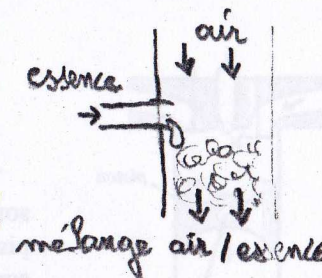 air
essence
mélange air / essence